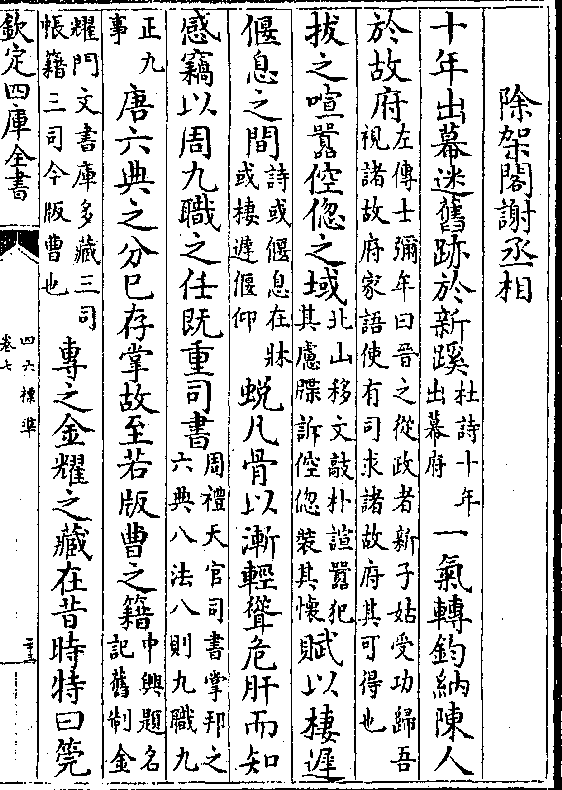 除架閣謝丞相
十年出幕迷舊跡於新蹊杜詩十年出幕府一氣轉鈞納陳人
於故府左傳士彌年曰晉之從政者新子姑受功歸吾視諸故府家語使有司求諸故府其可得也
拔之喧囂倥偬之域北山移文敲朴諠囂犯其慮牒訴倥偬裝其懷賦以棲遲
偃息之間詩或偃息在牀或棲遲偃仰蛻凡骨以漸輕聳危肝而知
感竊以周九職之任既重司書周禮天官司書掌邦之六典八法八則九職九
正九事唐六典之分已存掌故至若版曹之籍中興題名記舊制金
耀門文書庫多藏三司帳籍三司今版曹也專之金耀之藏在昔時特曰筦
欽定四庫全書
四六標準
卷七
二三